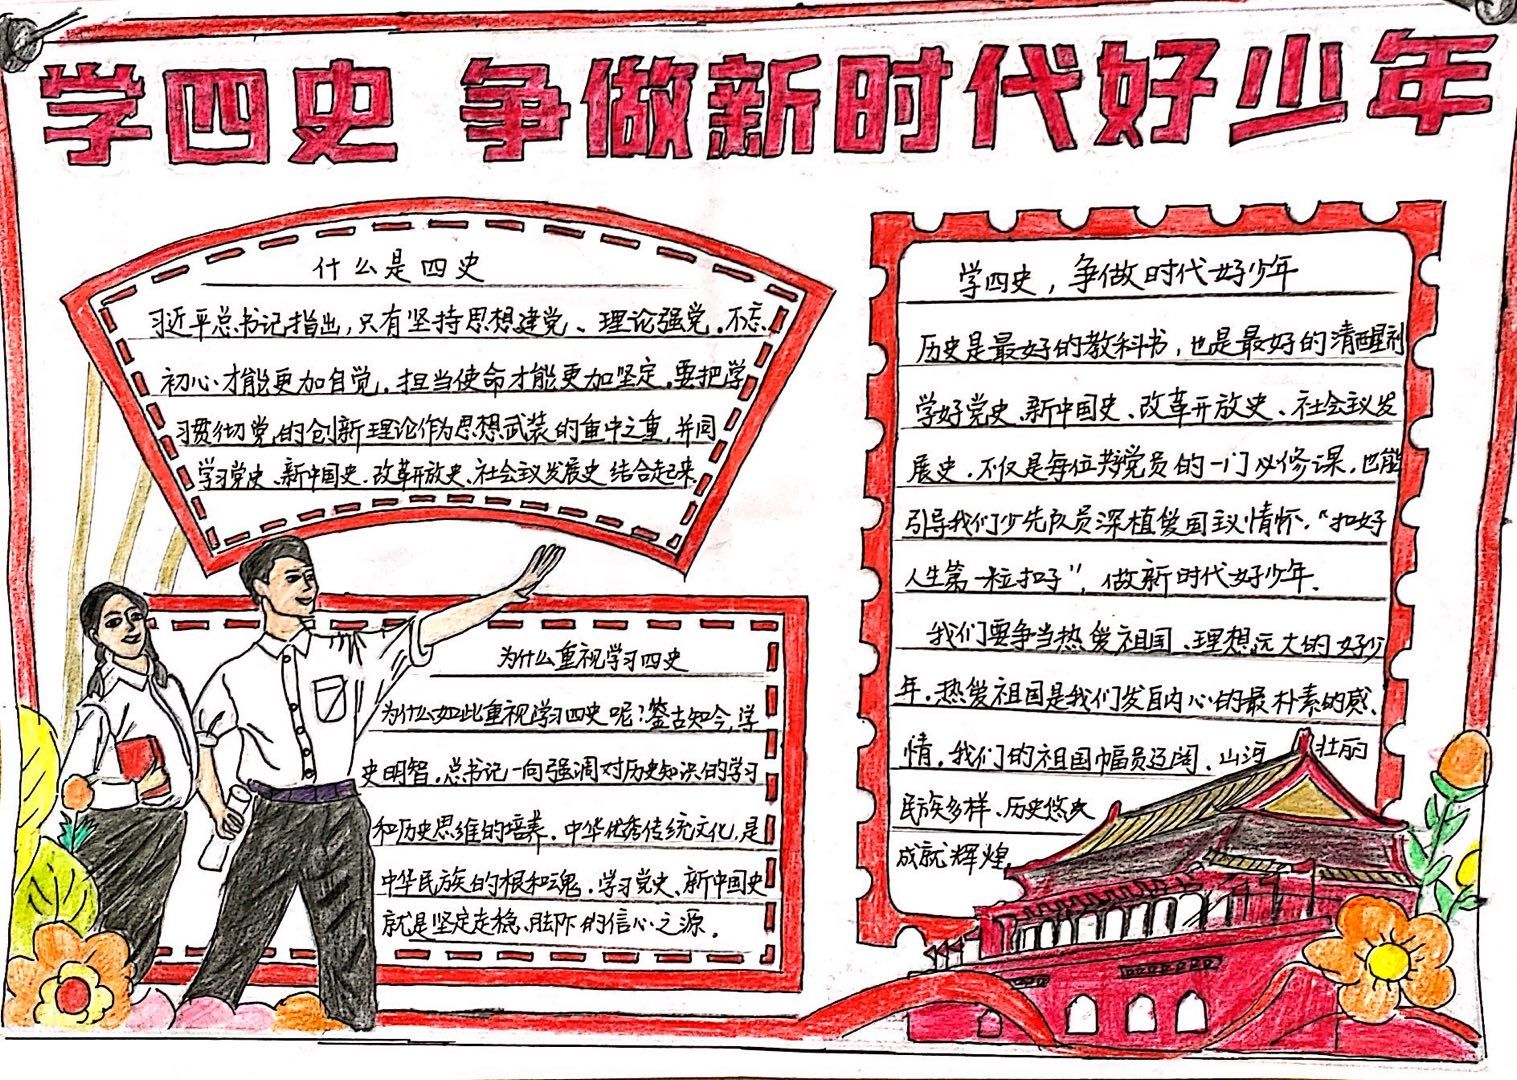 学四史 争做新时代好少年
什么是四史
习近平总书记指出，只有坚持思想建党、理论强党。不忘
初心才能更加自觉，担当使命才能更加坚定。要把学
习贯彻党的创新理论作为思想武装的重中之重，并同
学习党史、新中国史、改革开放史、社会主义发展史结合起来
为什么重视学习四史
为什么如此重视学习四史呢？鉴古知今，学
史明智。总书记一向强调对历史知识的学习
和历史思维的培养。中华优秀传统文化，是
中华民族的根和魂。学习党史、新中国史
就是坚定走稳、脚下的信心之源。
学四史，争做时代好少年
历史是最好的教科书，也是最好的清醒剂
学好党史、新中国史、改革开放史、社会主义发
展史。不仅是每位共党员的一门必修课，也能
引导我们少先队员深植爱国主义情怀。“扣好
人生第一粒扣子”，做新时代好少年。
我们要争当热爱祖国、理想远大的好少
年。热爱祖国是我们发自内心的最朴素的感
情。我们的祖国幅员辽阔、山河壮丽
民族多样、历史悠久
成就辉煌。